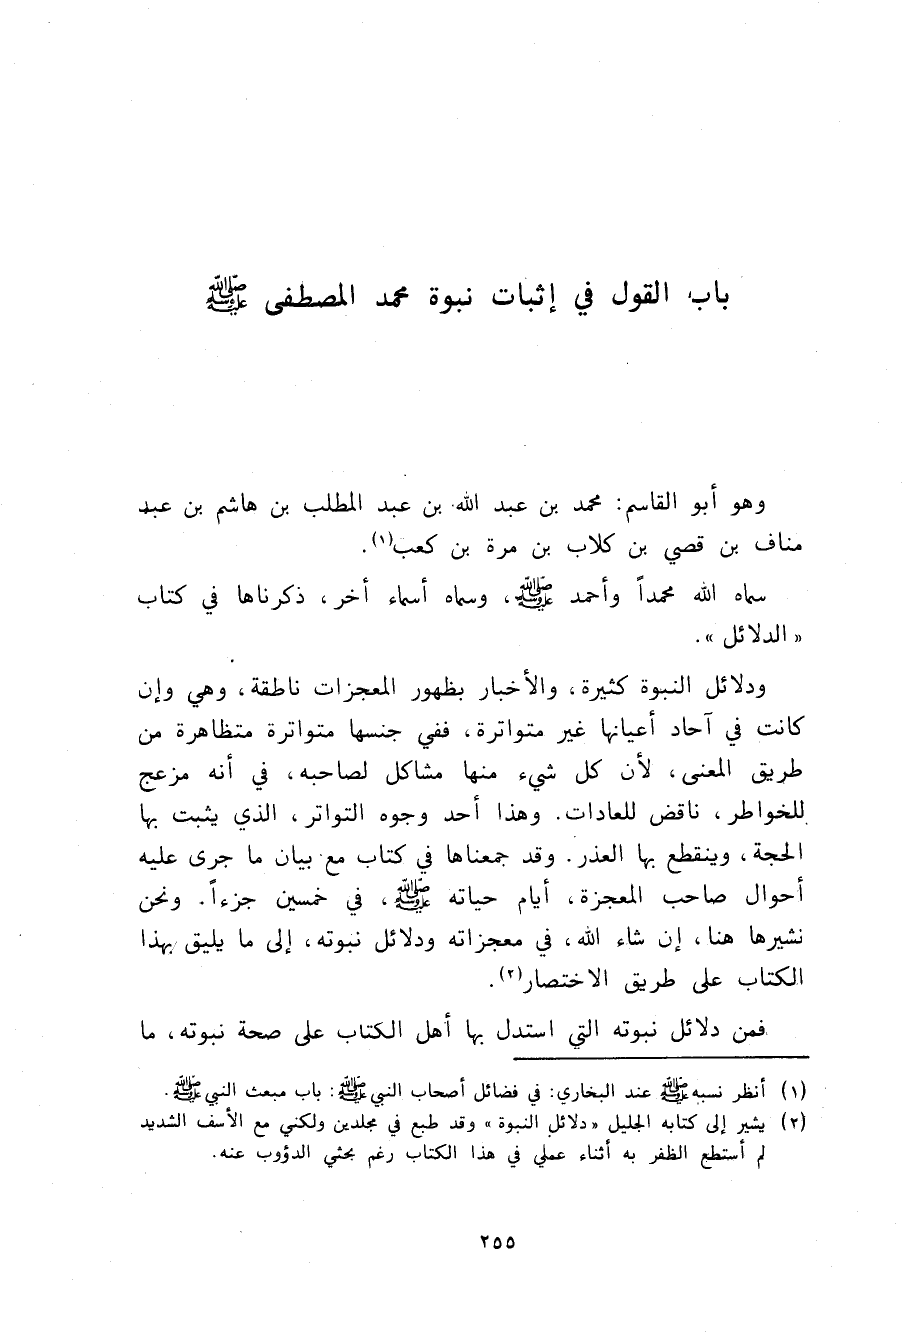 باب القول في إثبات نبوة محمد المصطفى ﷺ
وهو أبو القاسم: محمد بن عبد الله بن عبد المطلب بن هاشم بن عبد
مناف بن قصي بن كلاب بن مرة بن كعب(١).
سماه الله محمداً وأحمد ﷺ، وسماه أسماء أخر، ذكرناها في كتاب
« الدلائل ».
ودلائل النبوة كثيرة، والأخبار بظهور المعجزات ناطقة، وهي وإن
كانت في آحاد أعيانها غير متواترة، ففي جنسها متواترة متظاهرة من
طريق المعنى، لأن كل شيء منها مشاكل لصاحبه، في أنه مزعج
للخواطر، ناقض للعادات. وهذا أحد وجوه التواتر، الذي يثبت بها
الحجة، وينقطع بها العذر. وقد جمعناها في كتاب مع بيان ما جرى عليه
أحوال صاحب المعجزة، أيام حياته ﷺ، في خمسين جزءاً. ونحن
نشيرها هنا، إن شاء الله، في معجزاته ودلائل نبوته، إلى ما يليق بهذا
الكتاب على طريق الاختصار(٢).
فمن دلائل نبوته التي استدل بها أهل الكتاب على صحة نبوته، ما
(١) أنظر نسبه ﷺ عند البخاري: في فضائل أصحاب النبي ﷺ: باب مبعث النبي ﷺ.
(٢) يشير إلى كتابه الجليل « دلائل النبوة » وقد طبع في مجلدين ولكني مع الأسف الشديد
لم أستطع الظفر به أثناء عملي في هذا الكتاب رغم بحثي الدؤوب عنه.
٢٥٥